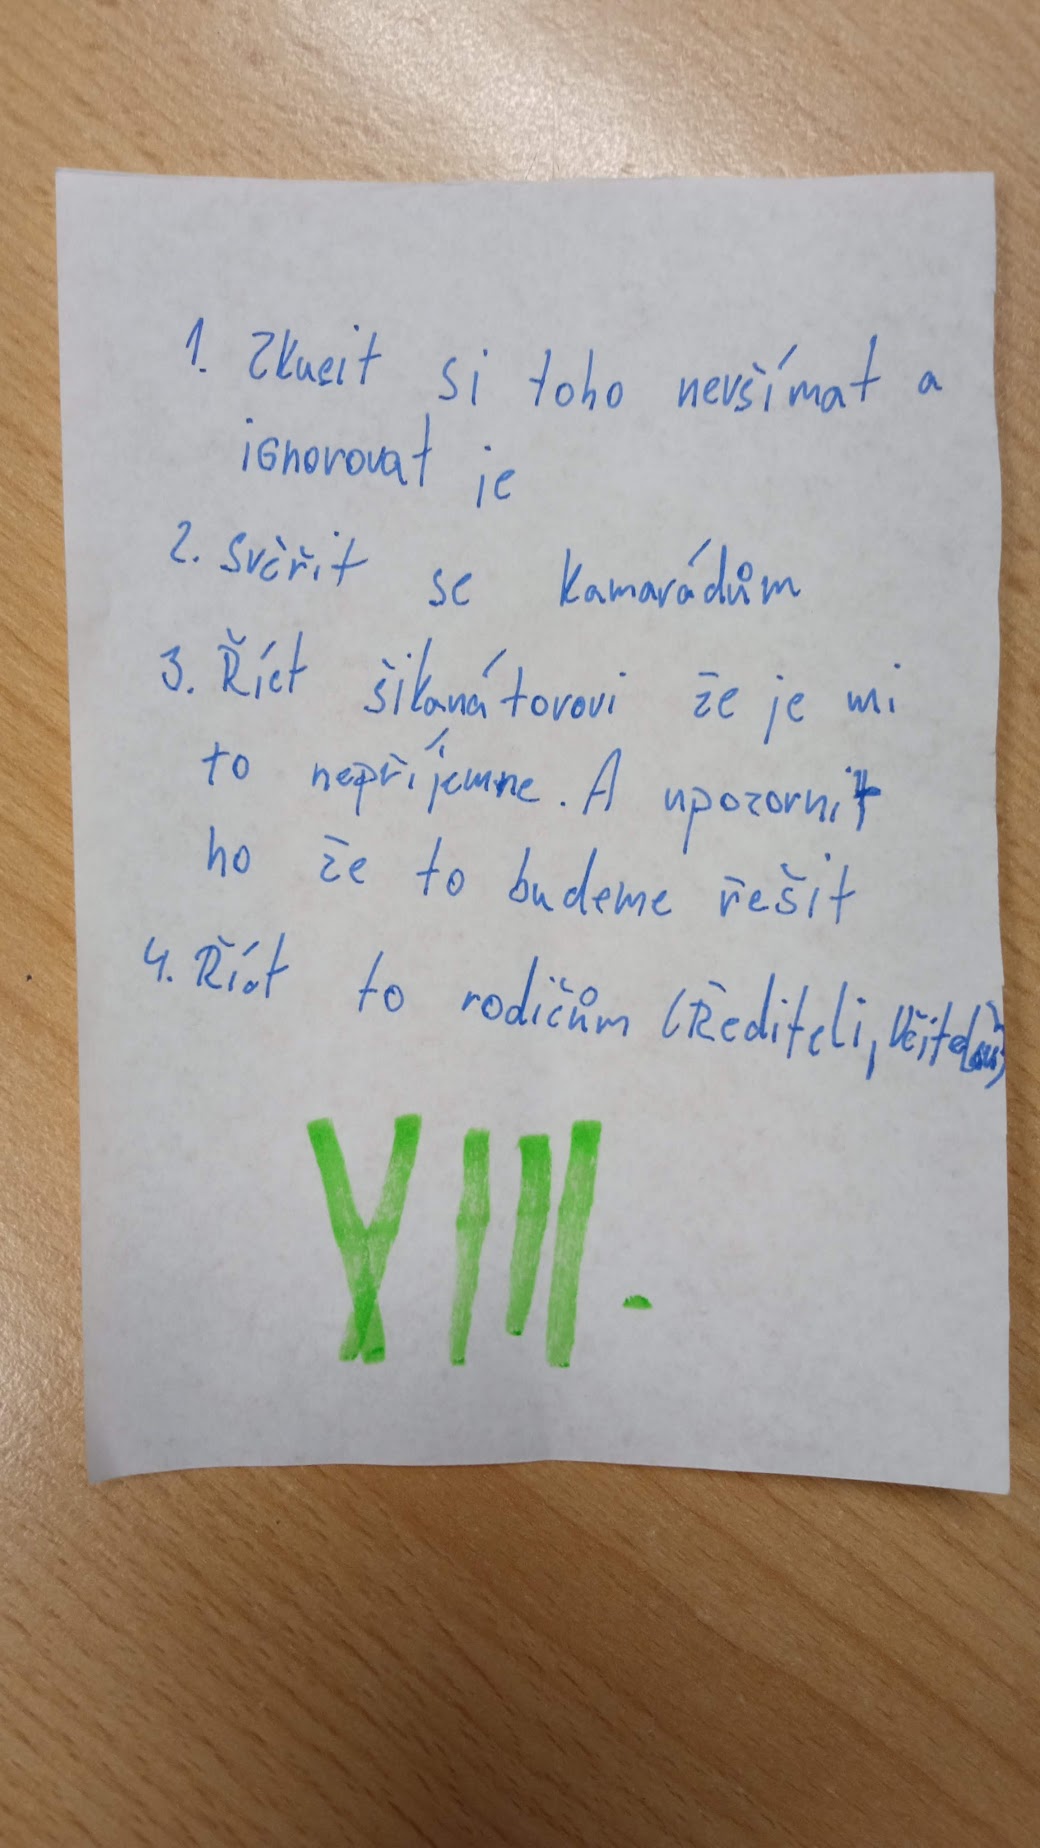 1. Zkusit si toho nevšímat a
ignorovat je
2. svěřit se kamarádům
3. Říct šikanátorovi že je mi
to nepříjemne. A upozornit
ho že to budeme řešit
4. Říct to rodičům (Řediteli,
XIII.